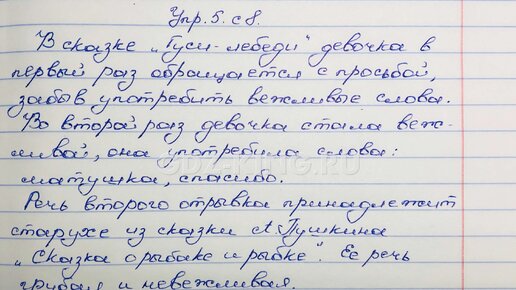 Упр. 5. с 8.
В сказке „Гуси-лебеди" девочка в
первый раз обращается с просьбой,
забыв употребить вежливые слова.
Во второй раз девочка стала веж-
ливой, она употребила слова:
матушка, спасибо.
Речь второго отрывка принадлежит
старухе из сказки А. Пушкина
„Сказка о рыбаке и рыбке". Ее речь
грубая и невежливая.